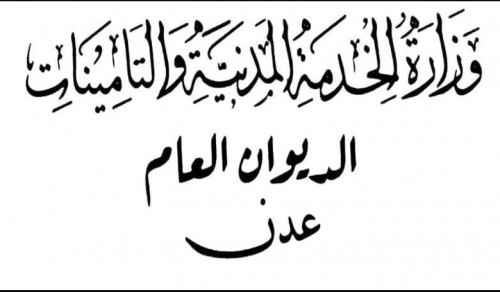 وَزَارَةُ الخِدمَةِ المَدَنيَّةِ وَالتَامِينَات
الديوان العام
عدن